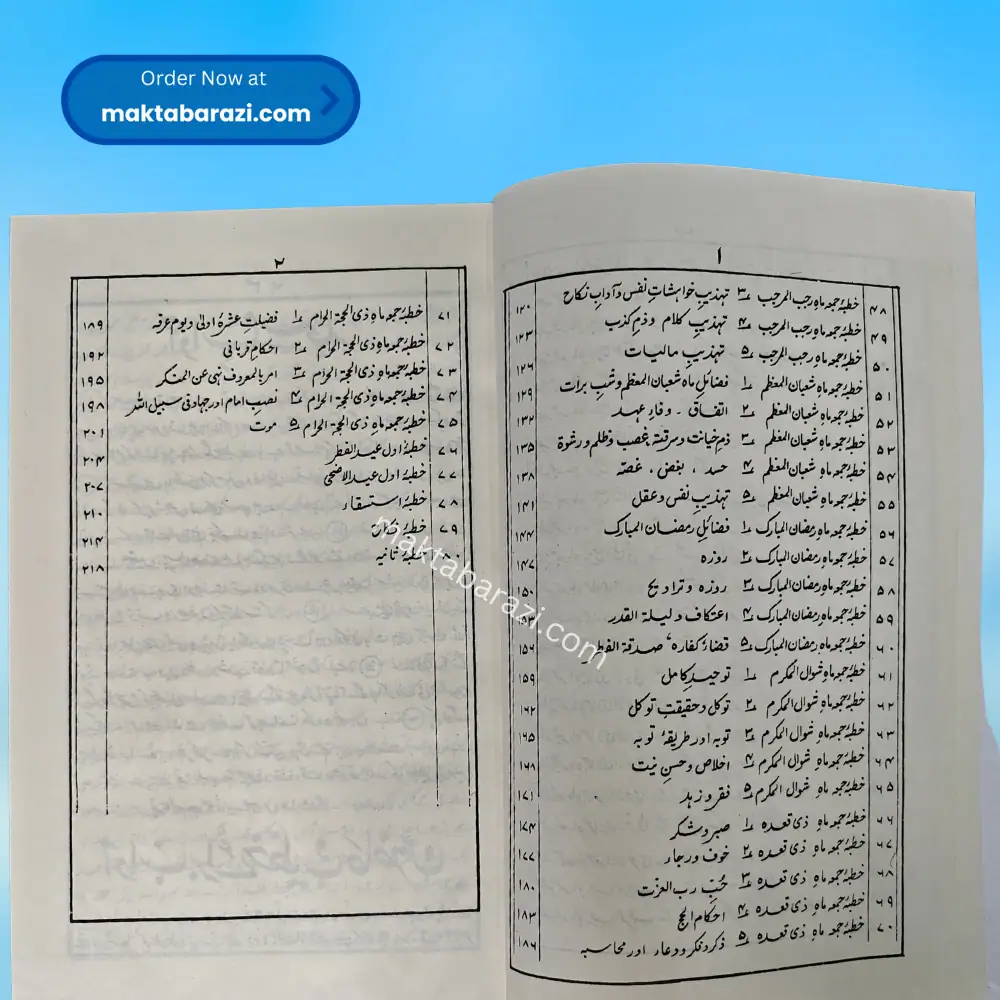 Order Now at
maktabarazi.com
۱
۴۸ خطبۂ جمعہ ماہِ رجب المرجب ۳ تہذیبِ خواہشاتِ نفس و آدابِ نکاح ۱۲۰
۴۹ خطبۂ جمعہ ماہِ رجب المرجب ۴ تہذیبِ کلام و ذمِ کذب ۱۲۳
۵۰ خطبۂ جمعہ ماہِ رجب المرجب ۵ تہذیبِ مالیات ۱۲۶
۵۱ خطبۂ جمعہ ماہِ شعبان المعظم ۱ فضائلِ ماہ شعبان المعظم و شبِ برات ۱۲۹
۵۲ خطبۂ جمعہ ماہِ شعبان المعظم ۲ اتفاق ۔ وفاءِ عہد ۱۳۲
۵۳ خطبۂ جمعہ ماہِ شعبان المعظم ۳ ذمِ خیانت و سرقتہ، غصب و ظلم و رشوۃ ۱۳۵
۵۴ خطبۂ جمعہ ماہِ شعبان المعظم ۴ حسد ، بغض ، غصّہ ۱۳۸
۵۵ خطبۂ جمعہ ماہِ شعبان المعظم ۵ تہذیبِ نفس و عقل ۱۴۱
۵۶ خطبۂ جمعہ ماہِ رمضان المبارک ۱ فضائلِ رمضان المبارک ۱۴۴
۵۷ خطبۂ جمعہ ماہِ رمضان المبارک ۲ روزہ ۱۴۷
۵۸ خطبۂ جمعہ ماہِ رمضان المبارک ۳ روزہ و تراویح ۱۵۰
۵۹ خطبۂ جمعہ ماہِ رمضان المبارک ۴ اعتکاف و لیلۃ القدر
۶۰ خطبۂ جمعہ ماہِ رمضان المبارک ۵ قضاء کفارہ، صدقۃ الفطر ۱۵۶
۶۱ خطبۂ جمعہ ماہِ شوال المکرم ۱ توحیدِ کامل ۱۵۹
۶۲ خطبۂ جمعہ ماہِ شوال المکرم ۲ توکل و حقیقتِ توکل ۱۶۲
۶۳ خطبۂ جمعہ ماہِ شوال المکرم ۳ توبہ اور طریقۂ توبہ ۱۶۵
۶۴ خطبۂ جمعہ ماہِ شوال المکرم ۴ اخلاص و حسنِ نیت ۱۶۸
۶۵ خطبۂ جمعہ ماہِ شوال المکرم ۵ فقر و زہد ۱۷۱
۶۶ خطبۂ جمعہ ماہِ ذی قعدہ ۱ صبر و شکر ۱۷۴
۶۷ خطبۂ جمعہ ماہِ ذی قعدہ ۲ خوف و رجاء ۱۷۷
۶۸ خطبۂ جمعہ ماہِ ذی قعدہ ۳ حُبِّ رب العزت ۱۸۰
۶۹ خطبۂ جمعہ ماہِ ذی قعدہ ۴ احکام الحج ۱۸۳
۷۰ خطبۂ جمعہ ماہِ ذی قعدہ ۵ ذکر و فکر و دعاء اور محاسبہ ۱۸۶
۲
۷۱ خطبۂ جمعہ ماہِ ذی الحجۃ الحرام ۱ فضیلتِ عشرۂ اولیٰ و یومِ عرفہ ۱۸۹
۷۲ خطبۂ جمعہ ماہِ ذی الحجۃ الحرام ۲ احکامِ قربانی ۱۹۲
۷۳ خطبۂ جمعہ ماہِ ذی الحجۃ الحرام ۳ امر بالمعروف نہی عن المنکر ۱۹۵
۷۴ خطبۂ جمعہ ماہِ ذی الحجۃ الحرام ۴ نصبِ امام اور جہاد فی سبیل اللہ ۱۹۸
۷۵ خطبۂ جمعہ ماہِ ذی الحجۃ الحرام ۵ موت ۲۰۱
۷۶ خطبۂ اول عید الفطر ۲۰۴
۷۷ خطبۂ اول عید الاضحیٰ ۲۰۷
۷۸ خطبۂ استسقاء ۲۱۰
۷۹ خطبۂ نکاح ۲۱۴
۸۰ خطبۂ ثانیہ ۲۱۸
maktabarazi.com